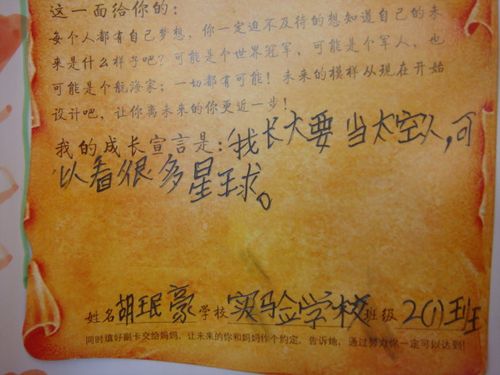 这一面给你的:
每个人都有自己梦想,你一定迫不及待的想知道自己的未
来是什么样子吧?可能是个世界冠军,可能是个军人,也
可能是个航海家,一切都有可能!未来的模样从现在开始
设计吧,让你离未来的你更近一步!
我的成长宣言是:我长大要当太空人,可
以看很多星球。
姓名胡珉豪学校实验学校班级2(1)班
同时填好副卡交给妈妈,让未来的你和妈妈作个约定,告诉她,通过努力你一定可以达到!